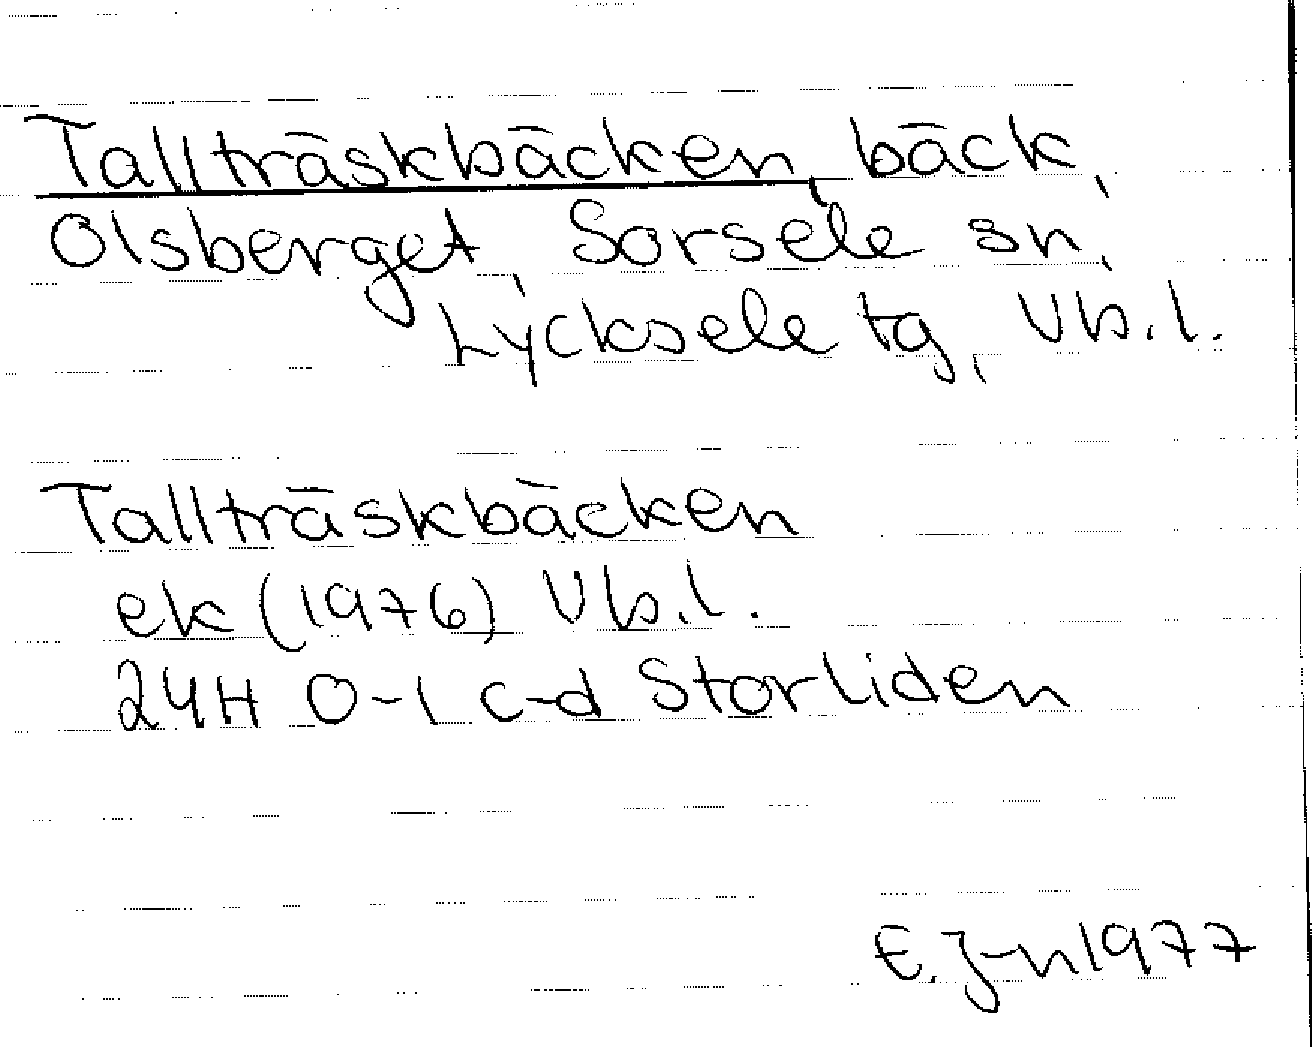 Tallträskbäcken, bäck,
Olsberget, Sorsele sn,
Lycksele tg, Vb.l.
Tallträskbäcken
ek (1976) Vb.l.
24H 0-1 c-d Storliden
E.J-n 1977